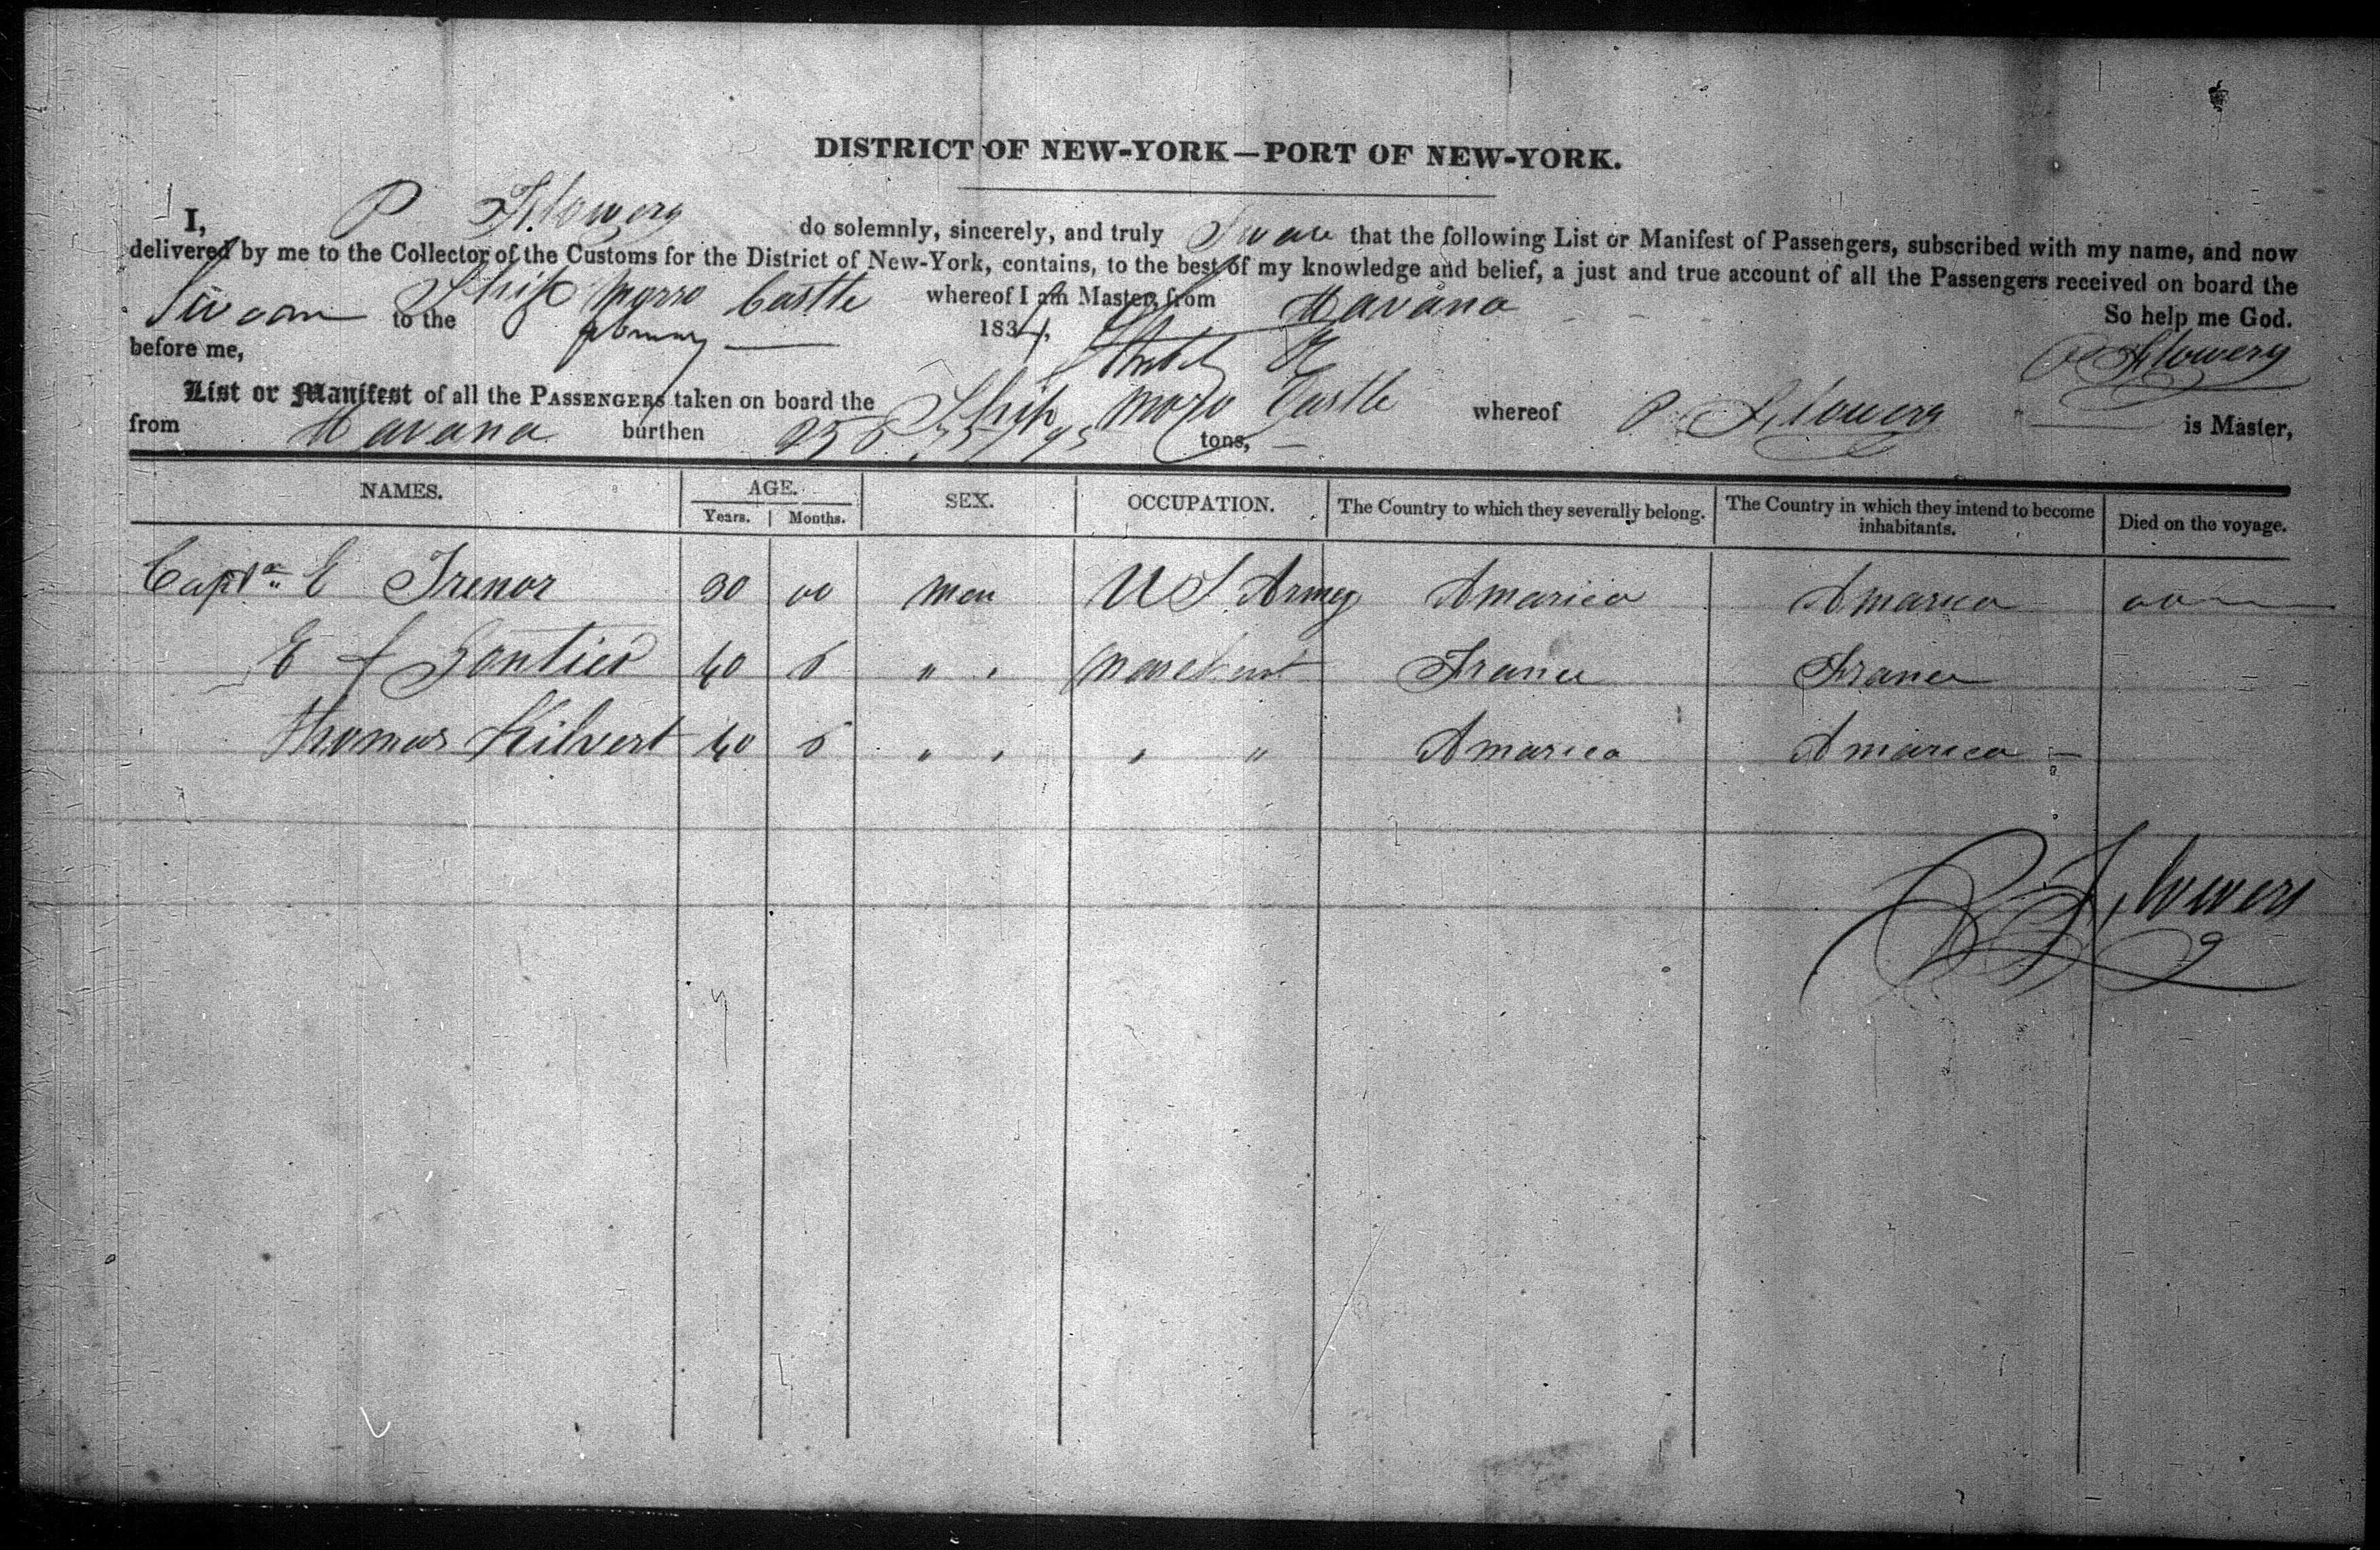 DISTRICT OF NEW-YORK—PORT OF NEW-YORK.
I, P Flowers do solemnly, sincerely, and truly Swear that the following List or Manifest of Passengers, subscribed with my name, and now
delivered by me to the Collector of the Customs for the District of New-York, contains, to the best of my knowledge and belief, a just and true account of all the Passengers received on board the
Ship Morro Castle whereof I am Master, from Havana So help me God.
Swoarn to the 183
before me, P Flowers
List or Manifest of all the PASSENGERS taken on board the Ship Moro Castle whereof P Flowers is Master,
from Havana burthen tons,
NAMES. AGE. SEX. OCCUPATION. The Country to which they severally belong. The Country in which they intend to become inhabitants. Died on the voyage.
Years. Months.
Captn E Trenor 30 00 Men U S Army Amarica Amarica 00
E f Gontier 40 6 " " France France
Thomas Kilvert 40 6 " " " " Amarica Amarica
P Flowers